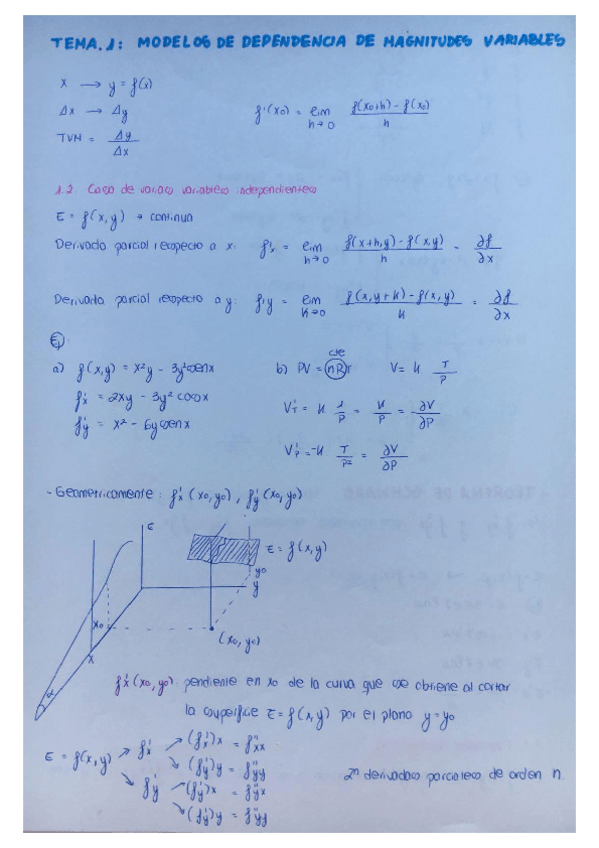 TEMA.1: MODELOS DE DEPENDENCIA DE MAGNITUDES VARIABLES
x → y = f(x)
Δx → Δy f'(x₀) = lim h→0 f(x₀+h) - f(x₀) / h
TVM = Δy / Δx
1.2 Caso de varias variables independientes
z = f(x,y) → continua
Derivada parcial respecto a x: f'x = lim h→0 f(x+h,y) - f(x,y) / h = ∂f / ∂x
Derivada parcial respecto a y: f'y = lim k→0 f(x,y+k) - f(x,y) / k = ∂f / ∂x
Ej:
a) f(x,y) = x²y - 3y²senx b) PV = nRT cte V = K T/P
f'x = 2xy - 3y²cosx V'T = K 1/P = K/P = ∂V/∂P
f'y = x² - 6ysenx V'P = -K T/P² = ∂V/∂P
- Geometricamente: f'x(x₀,y₀), f'y(x₀,y₀)
z
z = f(x,y)
y₀
y
x₀
(x₀,y₀)
x
α
f'x(x₀,y₀): pendiente en x₀ de la curva que se obtiene al cortar
la superficie z = f(x,y) por el plano y = y₀
z = f(x,y) → f'x → (f'x)x = f''xx
→ (f'y)y = f''yy
→ f'y → (f'y)x = f''yx
→ (f'y)y = f''yy
2ⁿ derivadas parciales de orden n.